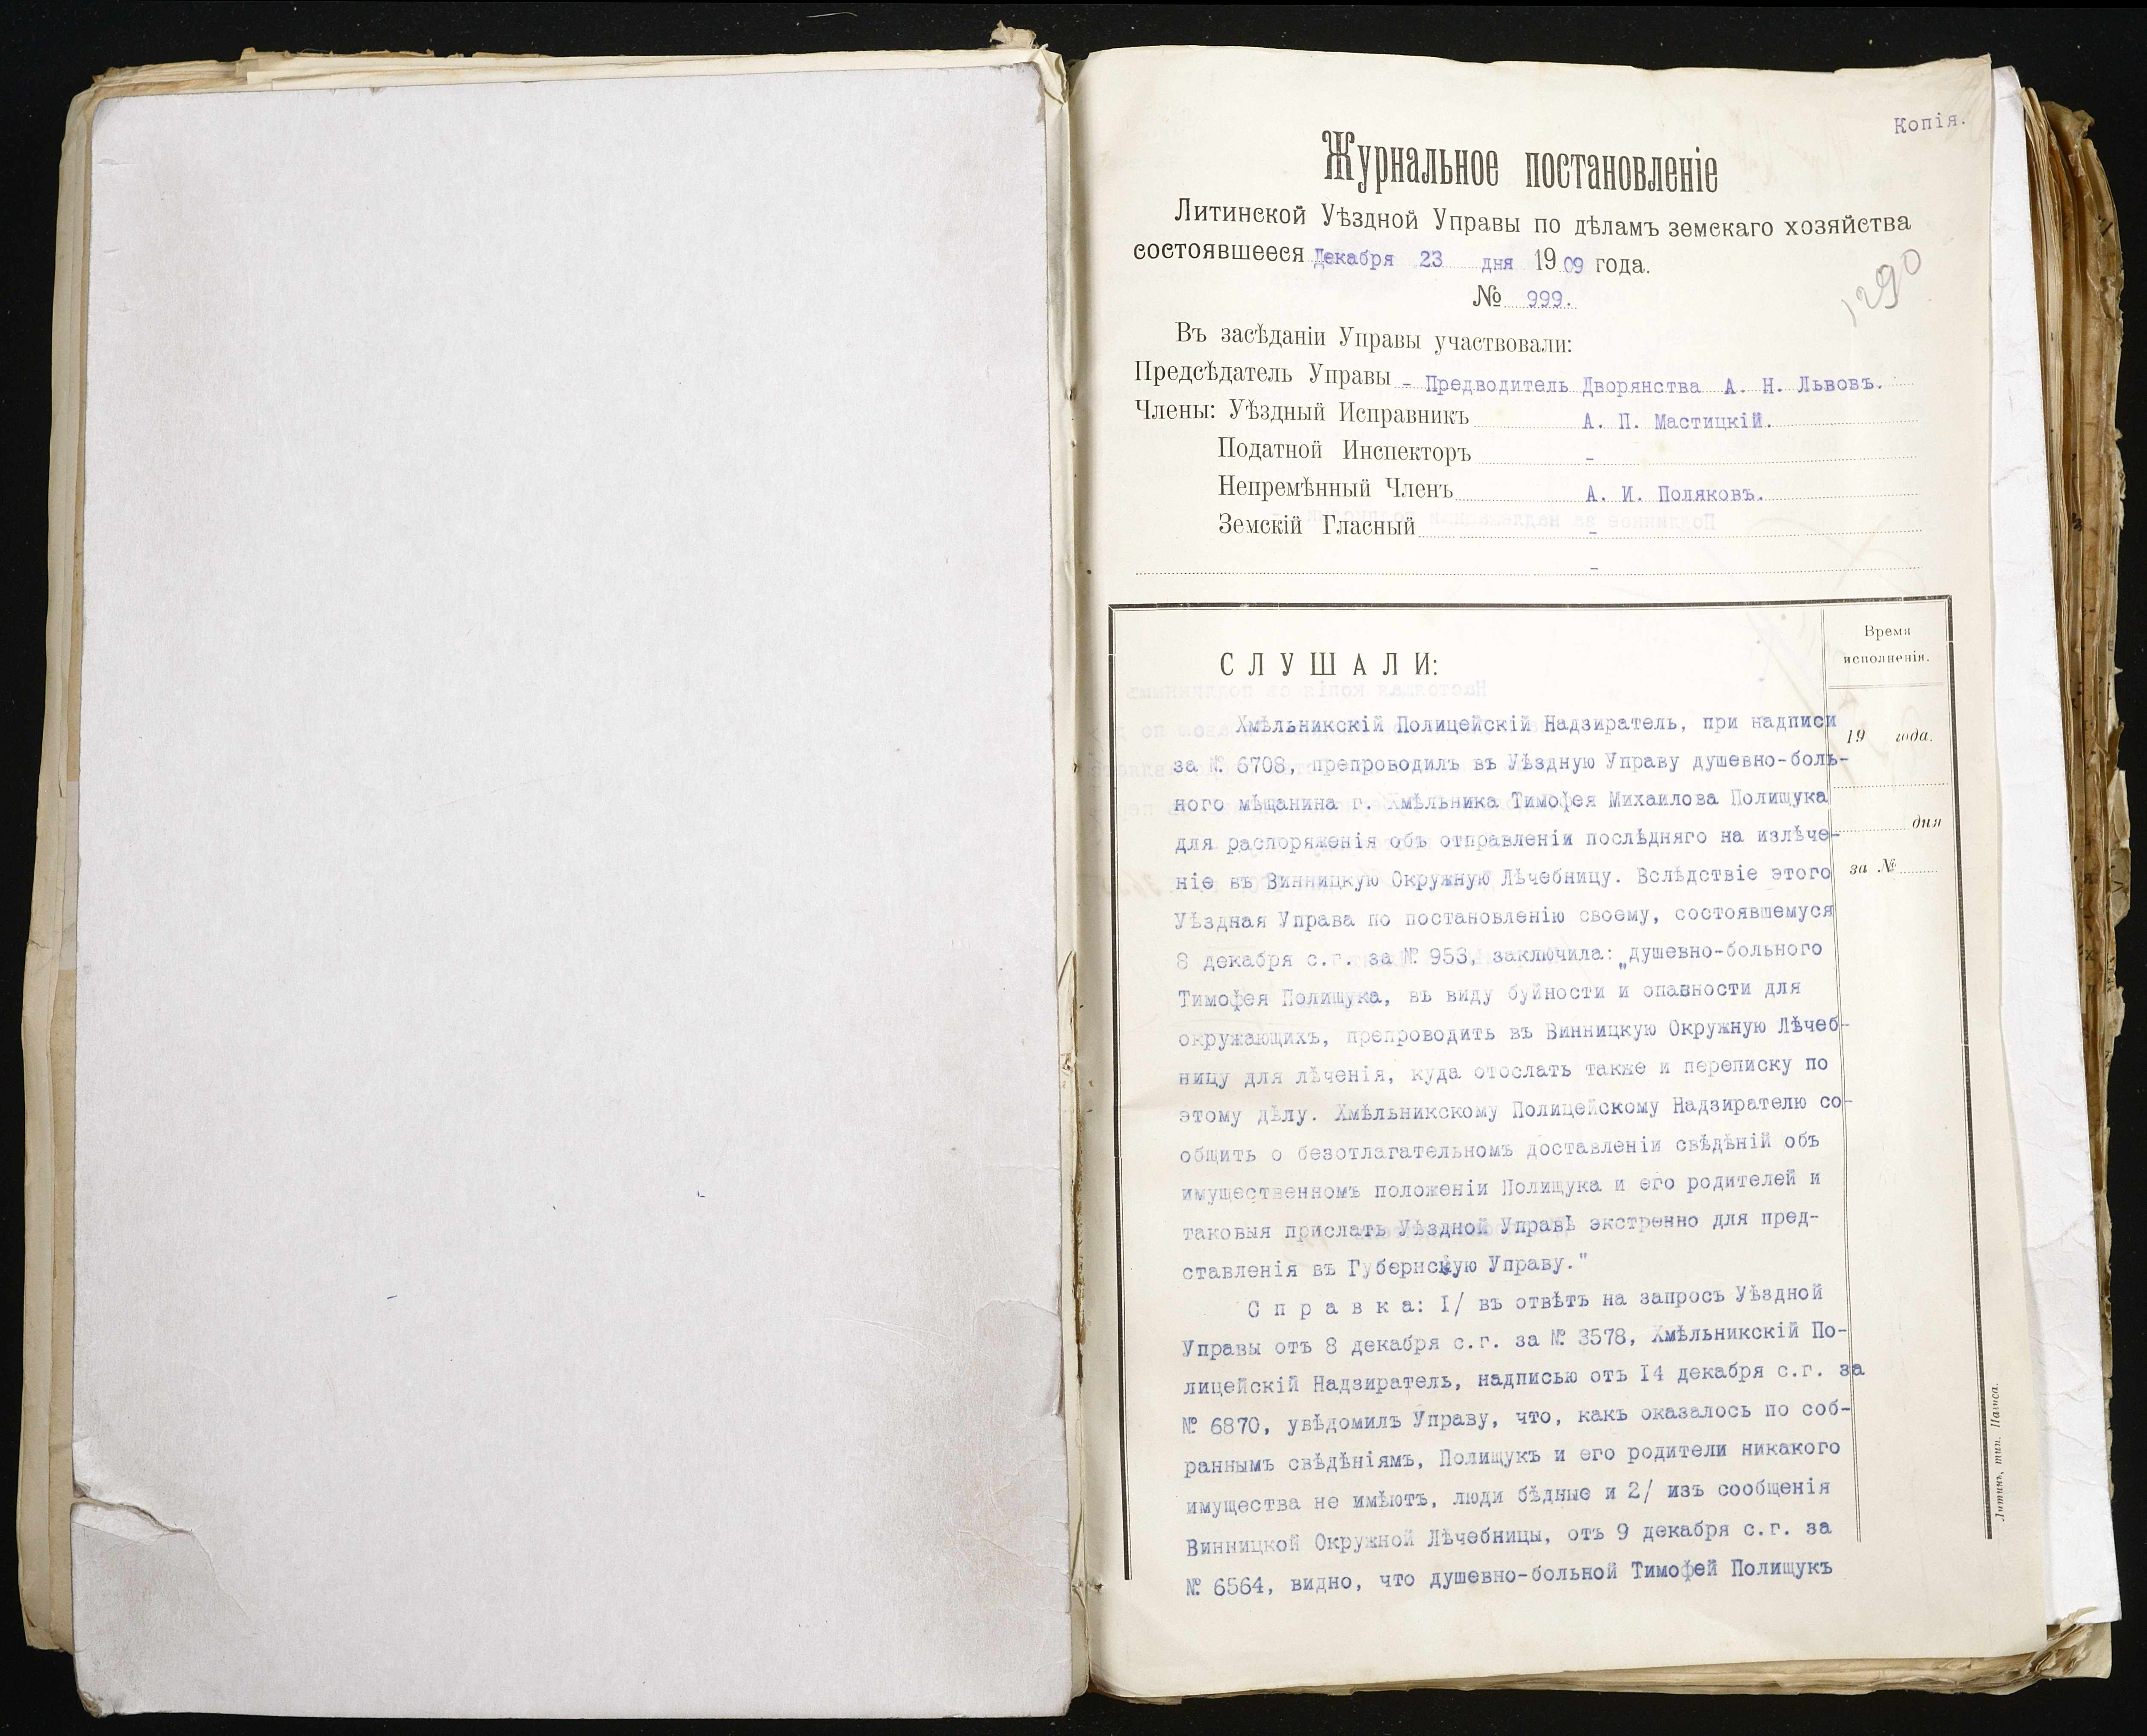 Копія.
Журнальное постановленіе
Литинской Уѣздной Управы по дѣламъ земскаго хозяйства
состоявшееся Декабря 23 дня 1909 года.
№ 999.
1290
Въ засѣданіи Управы участвовали:
Предсѣдатель Управы - Предводитель Дворянства А. Н. Львовъ.
Члены: Уѣздный Исправникъ А. П. Мастицкій.
Податной Инспекторъ -
Непремѣнный Членъ А. И. Поляковъ.
Земскій Гласный -
-
СЛУШАЛИ:
Время
исполненія.
19 года.
дня
за №
Хмѣльникскій Полицейскій Надзиратель, при надписи
за № 6708, препроводилъ въ Уѣздную Управу душевно-боль-
ного мѣщанина г. Хмѣльника Тимофея Михаилова Полищука
для распоряженія объ отправленіи послѣдняго на излѣче-
ніе въ Винницкую Окружную Лѣчебницу. Вслѣдствіе этого
Уѣздная Управа по постановленію своему, состоявшемуся
8 декабря с.г. за № 953, заключила: „душевно-больного
Тимофея Полищука, въ виду буйности и опавности для
окружающихъ, препроводить въ Винницкую Окружную Лѣчеб-
ницу для лѣченія, куда отослать также и переписку по
этому дѣлу. Хмѣльникскому Полицейскому Надзирателю со-
общить о безотлагательномъ доставленіи свѣдѣній объ
имущественномъ положеніи Полищука и его родителей и
таковыя прислать Уѣздной Управѣ экстренно для пред-
ставленія въ Губернскую Управу."
Справка: I/ въ отвѣтъ на запросъ Уѣздной
Управы отъ 8 декабря с.г. за № 3578, Хмѣльникскій По-
лицейскій Надзиратель, надписью отъ I4 декабря с.г. за
№ 6870, увѣдомилъ Управу, что, какъ оказалось по соб-
раннымъ свѣдѣніямъ, Полищукъ и его родители никакого
имущества не имѣютъ, люди бѣдные и 2/ изъ сообщенія
Винницкой Окружной Лѣчебницы, отъ 9 декабря с.г. за
№ 6564, видно, что душевно-больной Тимофей Полищукъ
Литинъ, тип.